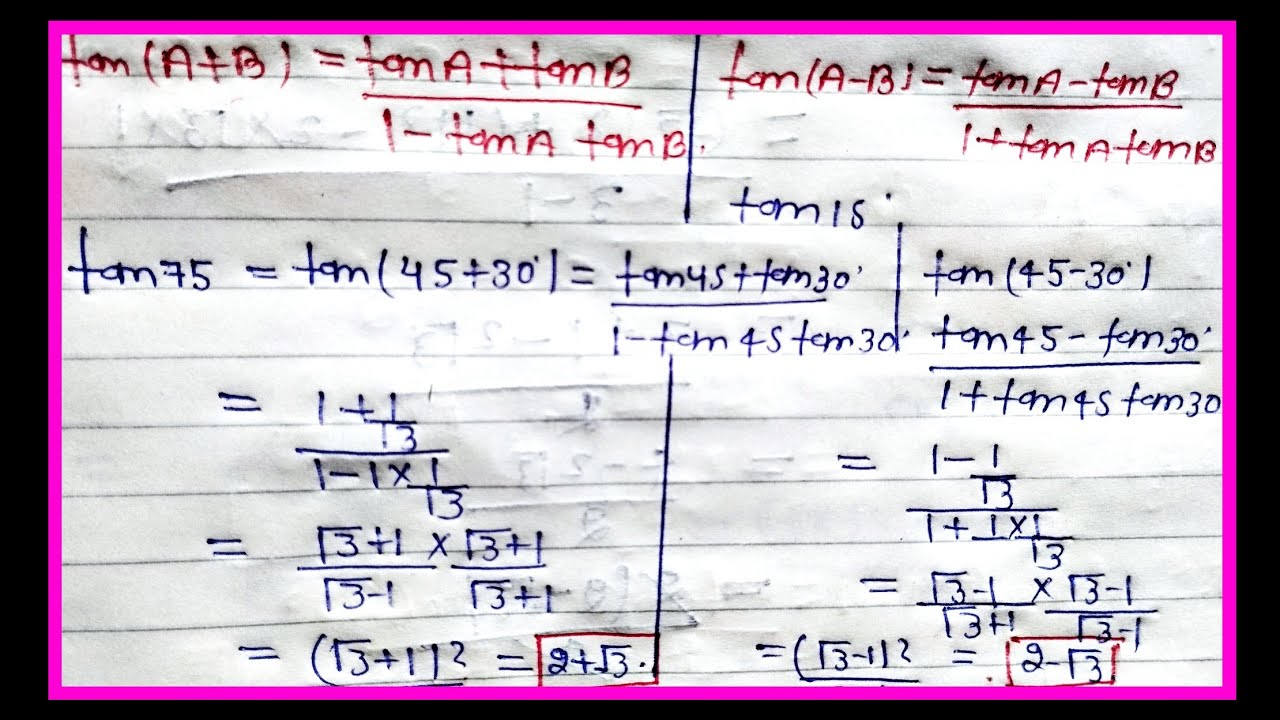 tan(A+B) = tanA + tanB
1 - tanA tanB.
tan(A-B) = tanA - tanB
1 + tanA tanB
tan75 = tan(45+30°) = tan45 + tan30°
1 - tan45 tan30°
= 1 + 1
√3
1 - 1 × 1
√3
= √3+1 × √3+1
√3-1 √3+1
= (√3+1)² = 2+√3.
tan15°
tan(45-30°)
tan45 - tan30°
1 + tan45 tan30
= 1 - 1
√3
1 + 1×1
√3
= √3-1 × √3-1
√3+1 √3-1
= (√3-1)² = 2-√3